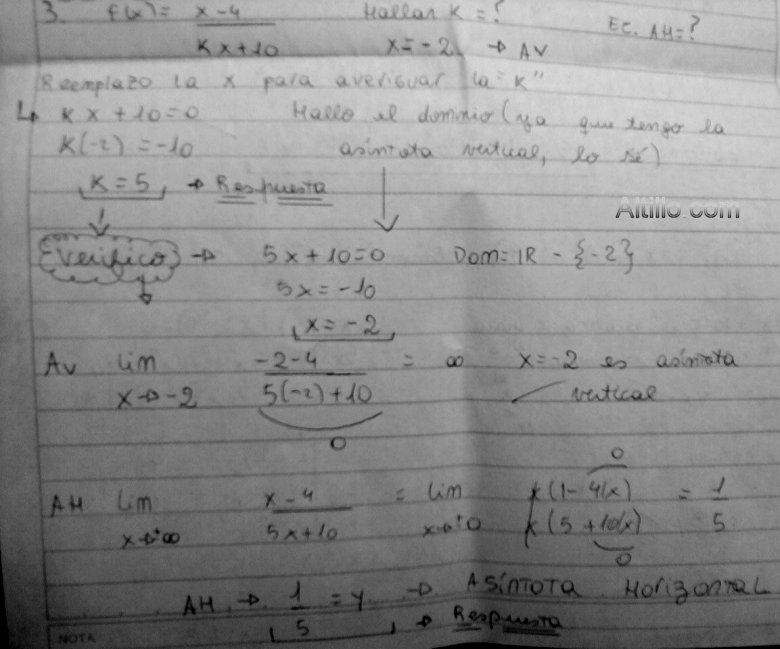 3. f(x) = x-4 / Kx+10 Hallar K = ? x = -2 → AV Ec. AH = ?
Reemplazo la x para averiguar la "K"
Kx + 10 = 0 Hallo el dominio (ya que tengo la
K(-2) = -10 asíntota vertical, lo sé)
K = 5 → Respuesta
Altillo.com
Verifico → 5x + 10 = 0 Dom = IR - {-2}
5x = -10
x = -2
AV lim x→-2 -2-4 / 5(-2)+10 = ∞ x = -2 es asíntota
vertical
0
0
AH lim x→+∞ x-4 / 5x+10 = lim x(1-4/x) / x(5+10/x) = 1/5
0
AH → 1/5 = y → Asíntota Horizontal
→ Respuesta
NOTA